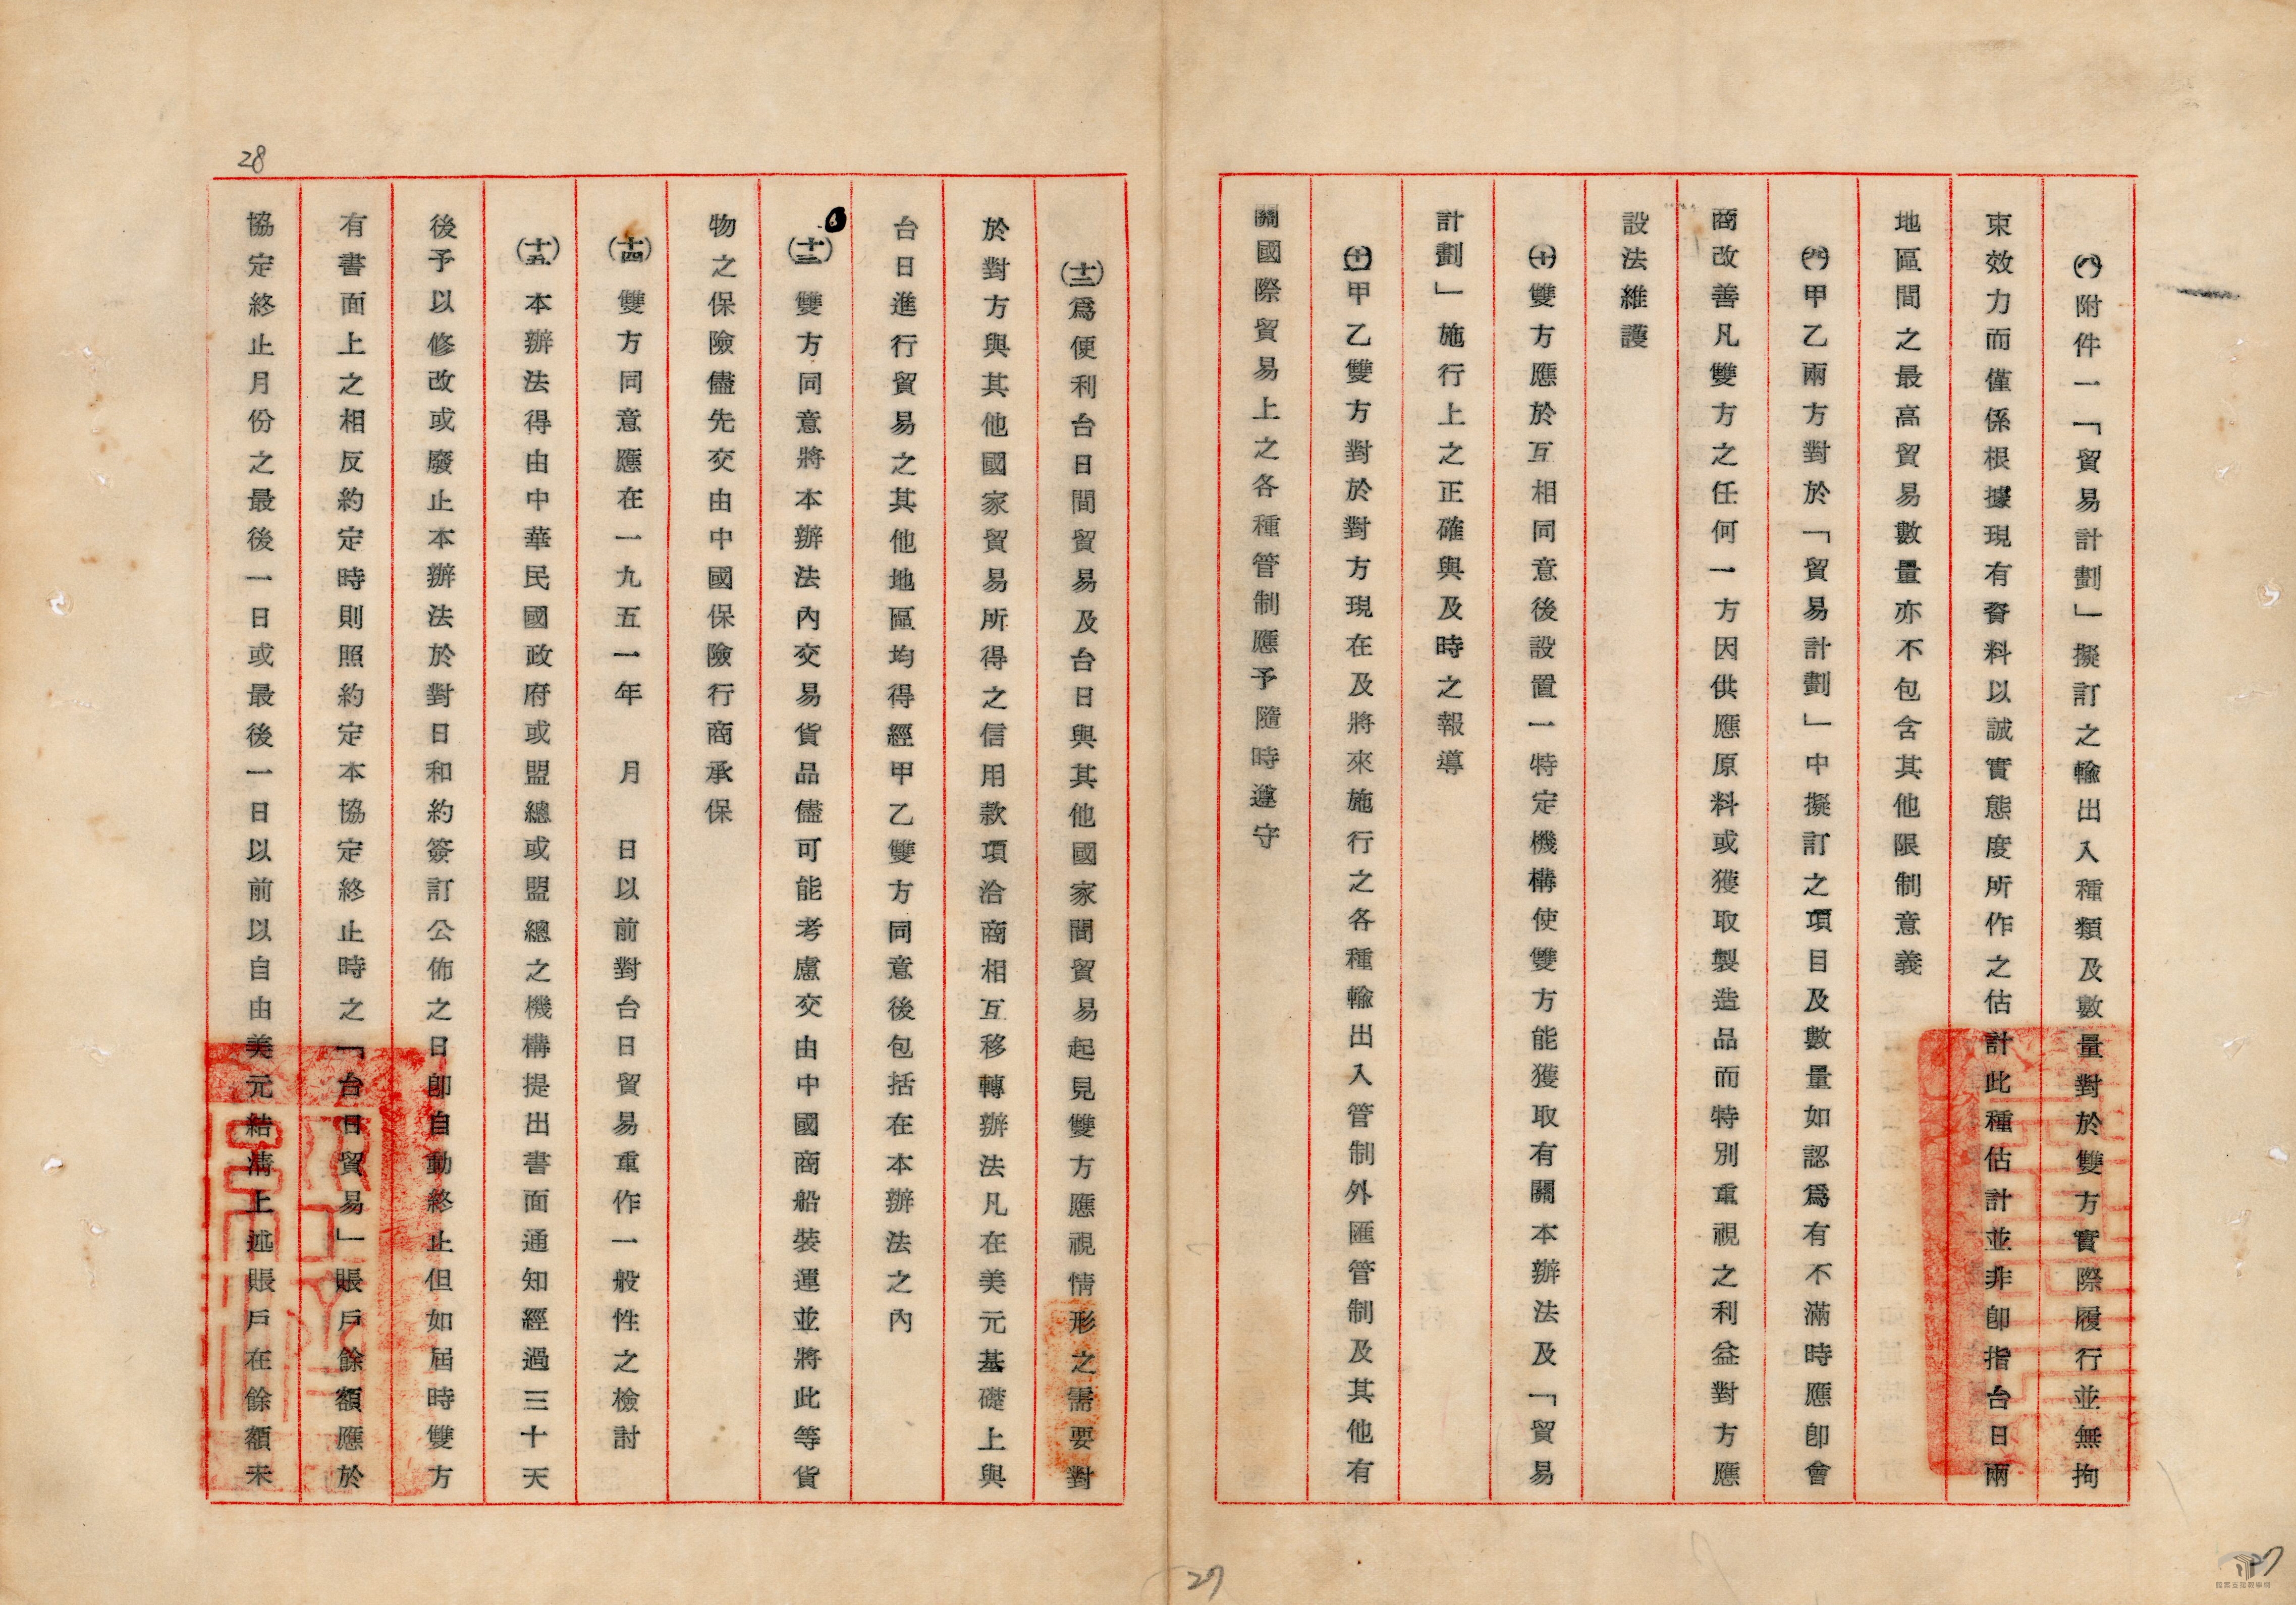 ㈧附件一「貿易計劃」擬訂之輸出入種類及數量對於雙方實際履行並無拘
束效力而僅係根據現有資料以誠實態度所作之估計此種估計並非即指台日兩
地區間之最高貿易數量亦不包含其他限制意義
甲乙兩方對於「貿易計劃」中擬訂之項目及數量如認爲有不滿時應即會
商改善凡雙方之任何一方因供應原料或獲取製造品而特別重視之利益對方應
設法維護
㈩雙方應於互相同意後設置一特定機構使雙方能獲取有關本辦法及「貿易
計劃」施行上之正確與及時之報導
甲乙雙方對於對方現在及將來施行之各種輸出入管制外匯管制及其他有
關國際貿易上之各種管制應予隨時遵守
27
(十二)爲便利台日間貿易及台日與其他國家間貿易起見雙方應視情形之需要對
於對方與其他國家貿易所得之信用款項洽商相互移轉辦法凡在美元基礎上與
台日進行貿易之其他地區均得經甲乙雙方同意後包括在本辦法之內
(十三)雙方同意將本辦法內交易貨品儘可能考慮交由中國商船裝運並將此等貨
物之保險儘先交由中國保險行商承保
(十四)雙方同意應在一九五一年　月　日以前對台日貿易重作一般性之檢討
(十五)本辦法得由中華民國政府或盟總或盟總之機構提出書面通知經過三十天
後予以修改或廢止本辦法於對日和約簽訂公佈之日即自動終止但如屆時雙方
有書面上之相反約定時則照約定本協定終止時之「台日貿易」賬戶餘額應於
協定終止月份之最後一日或最後一日以前以自由美元結清上述賬戶在餘額未
28
27
檔案支援教學網